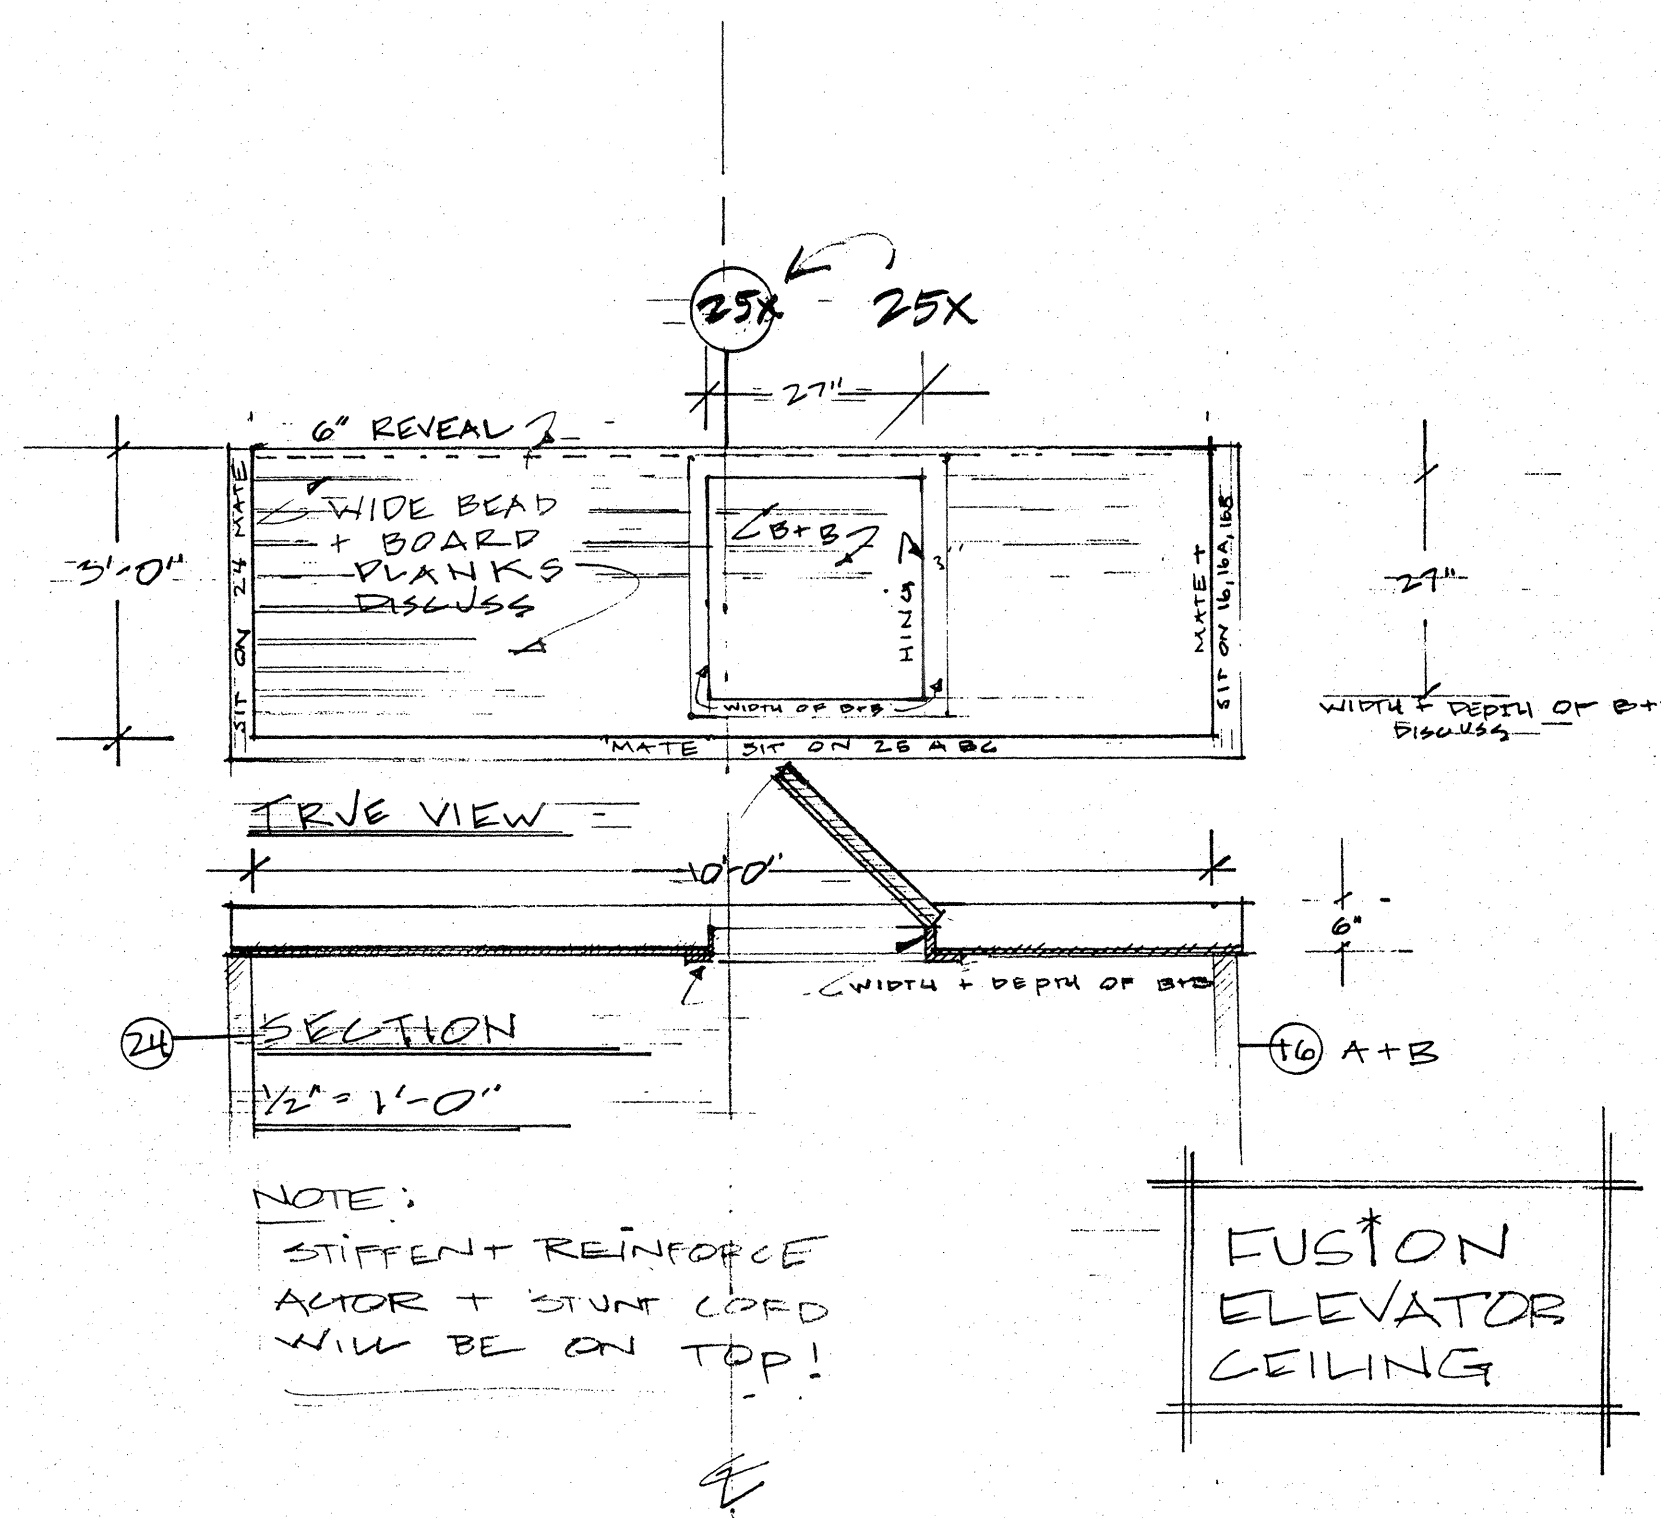 25X
25X
27"
6" REVEAL
WIDE BEAD
+ BOARD
PLANKS
DISCUSS
B+B
HING
3"
3'-0"
SIT ON 24 MATE
MATE +
SIT ON 16, 16A, 16B
27"
WIDTH + DEPTH OF B+
DISCUSS
WIDTH OF B+B
"MATE" SIT ON 25 ABC
TRUE VIEW
10'-0"
6"
WIDTH + DEPTH OF B+B
24
SECTION
16 A+B
1/2" = 1'-0"
NOTE:
STIFFEN + REINFORCE
ACTOR + STUNT COORD
WILL BE ON TOP!
FUSION
ELEVATOR
CEILING